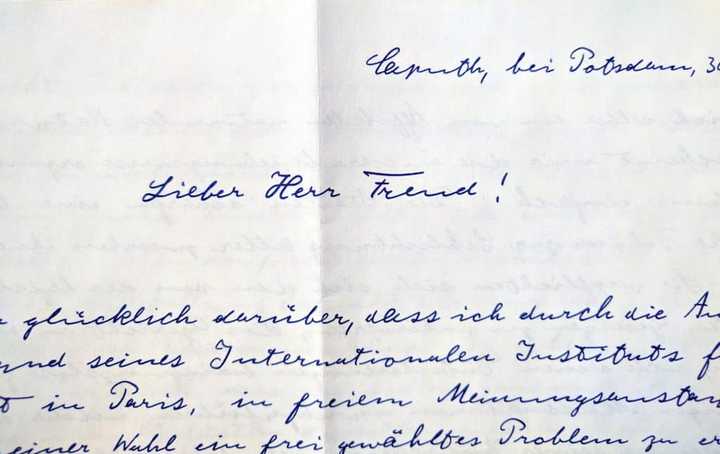 Caputh, bei Potsdam, 30
Lieber Herr Freud!
glücklich darüber, dass ich durch die An
und seines Internationalen Instituts f
t in Paris, in freiem Meinungsaustau
einer Wahl ein frei gewähltes Problem zu er